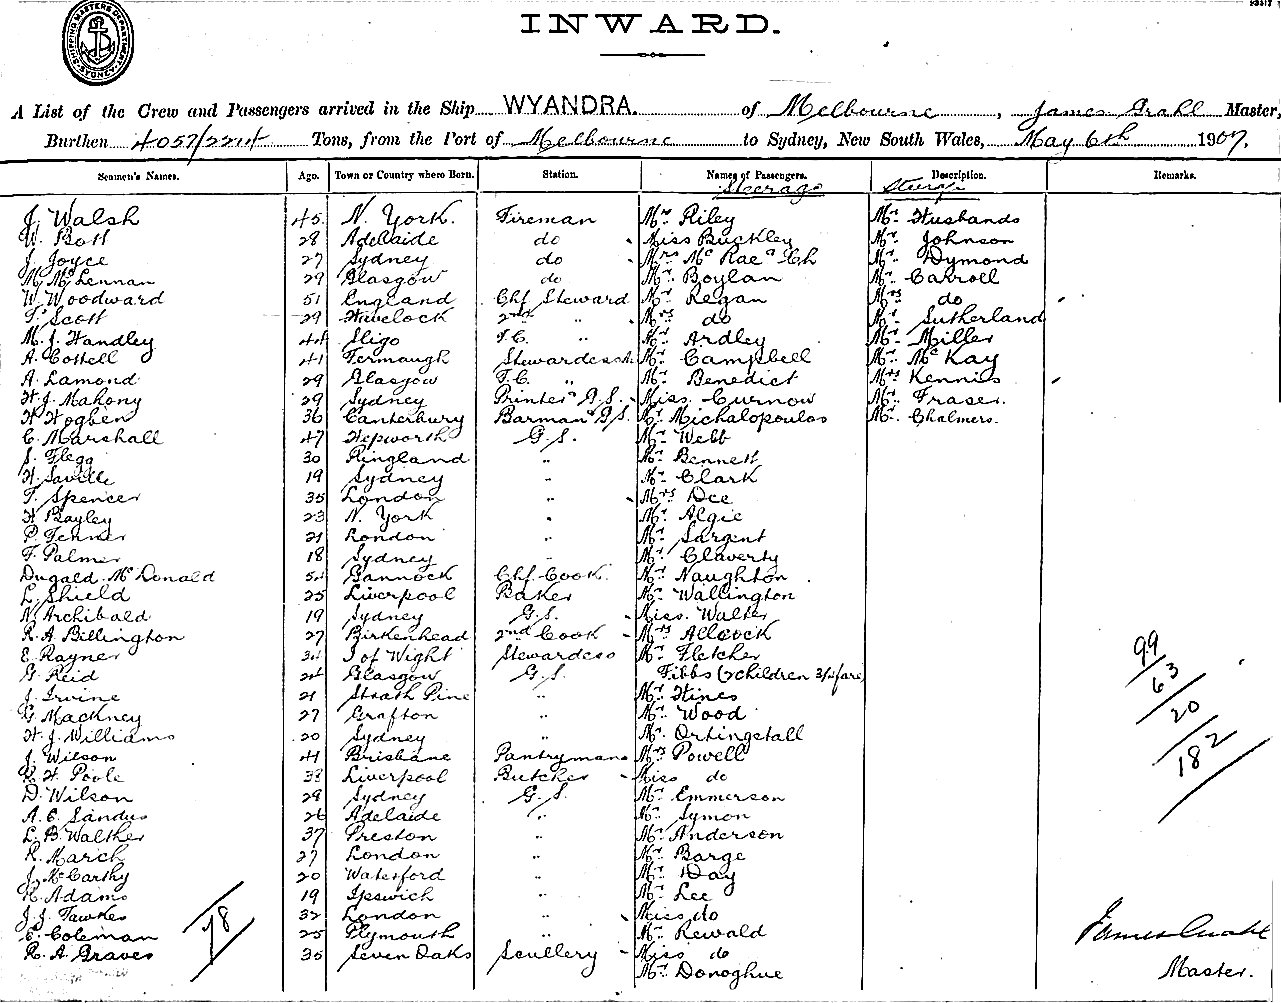 SHIPPING MASTERS DEPARTMENT SYDNEY
INWARD.
A List of the Crew and Passengers arrived in the Ship WYANDRA. of Melbourne, James Grahl Master,
Burthen 4057/2214 Tons, from the Port of Melbourne to Sydney, New South Wales, May 6th 1907.
Seamen's Names. Age. Town or Country where Born. Station. Names of Passengers. Description. Remarks.
Steerage Steerage
J. Walsh 45 N. York. Fireman Mr. Riley Mr. Husbands
W. Bott 28 Adelaide do Miss Buckley Mr. Johnson
J. Joyce 27 Sydney do Mrs Mc Rae & Ch Mr. Dymond
M. McLennan 29 Glasgow do Mr. Boylan Mr. Carroll
W. Woodward 51 England Chf Steward Mr. Regan Mrs do
T. Scott 29 Havelock 2nd " Mrs do Mr. Sutherland
M. J. Handley 44 Sligo F.C. " Mr. Ardley Mr. Miller
A. Cottell 41 Fermaugh Stewardess Mr. Campbell Mr. Mc Kay
A. Lamond 29 Glasgow F.C. " Mr. Benedict Mrs Kennis
H. J. Mahony 29 Sydney Printer & G.S. Miss. Curnow Mr. Fraser.
H. Hogben 36 Canterbury Barman & G.S. Mr. Michalopoulos Mr. Chalmers.
C. Marshall 47 Hepworth G.S. Mr. Webb
S. Flegg 30 Ringland " Mr. Bennett
H. Saville 19 Sydney " Mr. Clark
T. Spencer 35 London " Mrs Dee
H. Bayley 23 N. York " Mr. Algie
P. Fenner 21 London " Mr. Sargent
F. Palmer 18 Sydney " Mr. Claverty
Dugald McDonald 54 Gannock Chf. Cook Mr. Naughton
L. Shield 25 Liverpool Baker Mr. Wallington
N. Archibald 19 Sydney G.S. Miss. Walter
R. A. Billington 27 Birkenhead 2nd Cook Mrs Allcock
E. Rayner 34 I of Wight Stewardess Mr. Fletcher
G. Reid 24 Glasgow G.S. Tibbs (2 children 3/4 fare)
J. Irvine 21 Strath Pine " Mr. Hines
G. Mackney 27 Grafton " Mr. Wood
H. J. Williams 20 Sydney " Mr. Ortingstall
J. Wilson 41 Brisbane Pantryman Mrs Powell
R. H. Poole 38 Liverpool Butcher Miss do
D. Wilson 29 Sydney G.S. Mr. Emmerson
A. E. Sandus 26 Adelaide " Mr. Symon
L. B. Walther 37 Preston " Mr. Anderson
R. March 27 London " Mr. Barge
J. McCarthy 20 Waterford " Mr. Day
R. Adams 19 Ipswich " Mr. Lee
J. J. Fawkes 32 London " Miss do
E. Coleman 25 Plymouth " Mr. Rewald
R. A. Graves 35 Seven Oaks Scullery Miss do
Mr. Donoghue
78
99
63
20
182
James Grahl
Master.